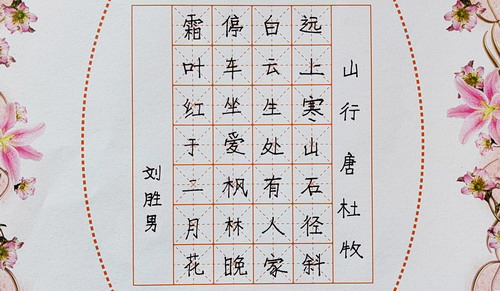 山行 唐 杜牧
远上寒山石径斜
白云生处有人家
停车坐爱枫林晚
霜叶红于二月花
刘胜男